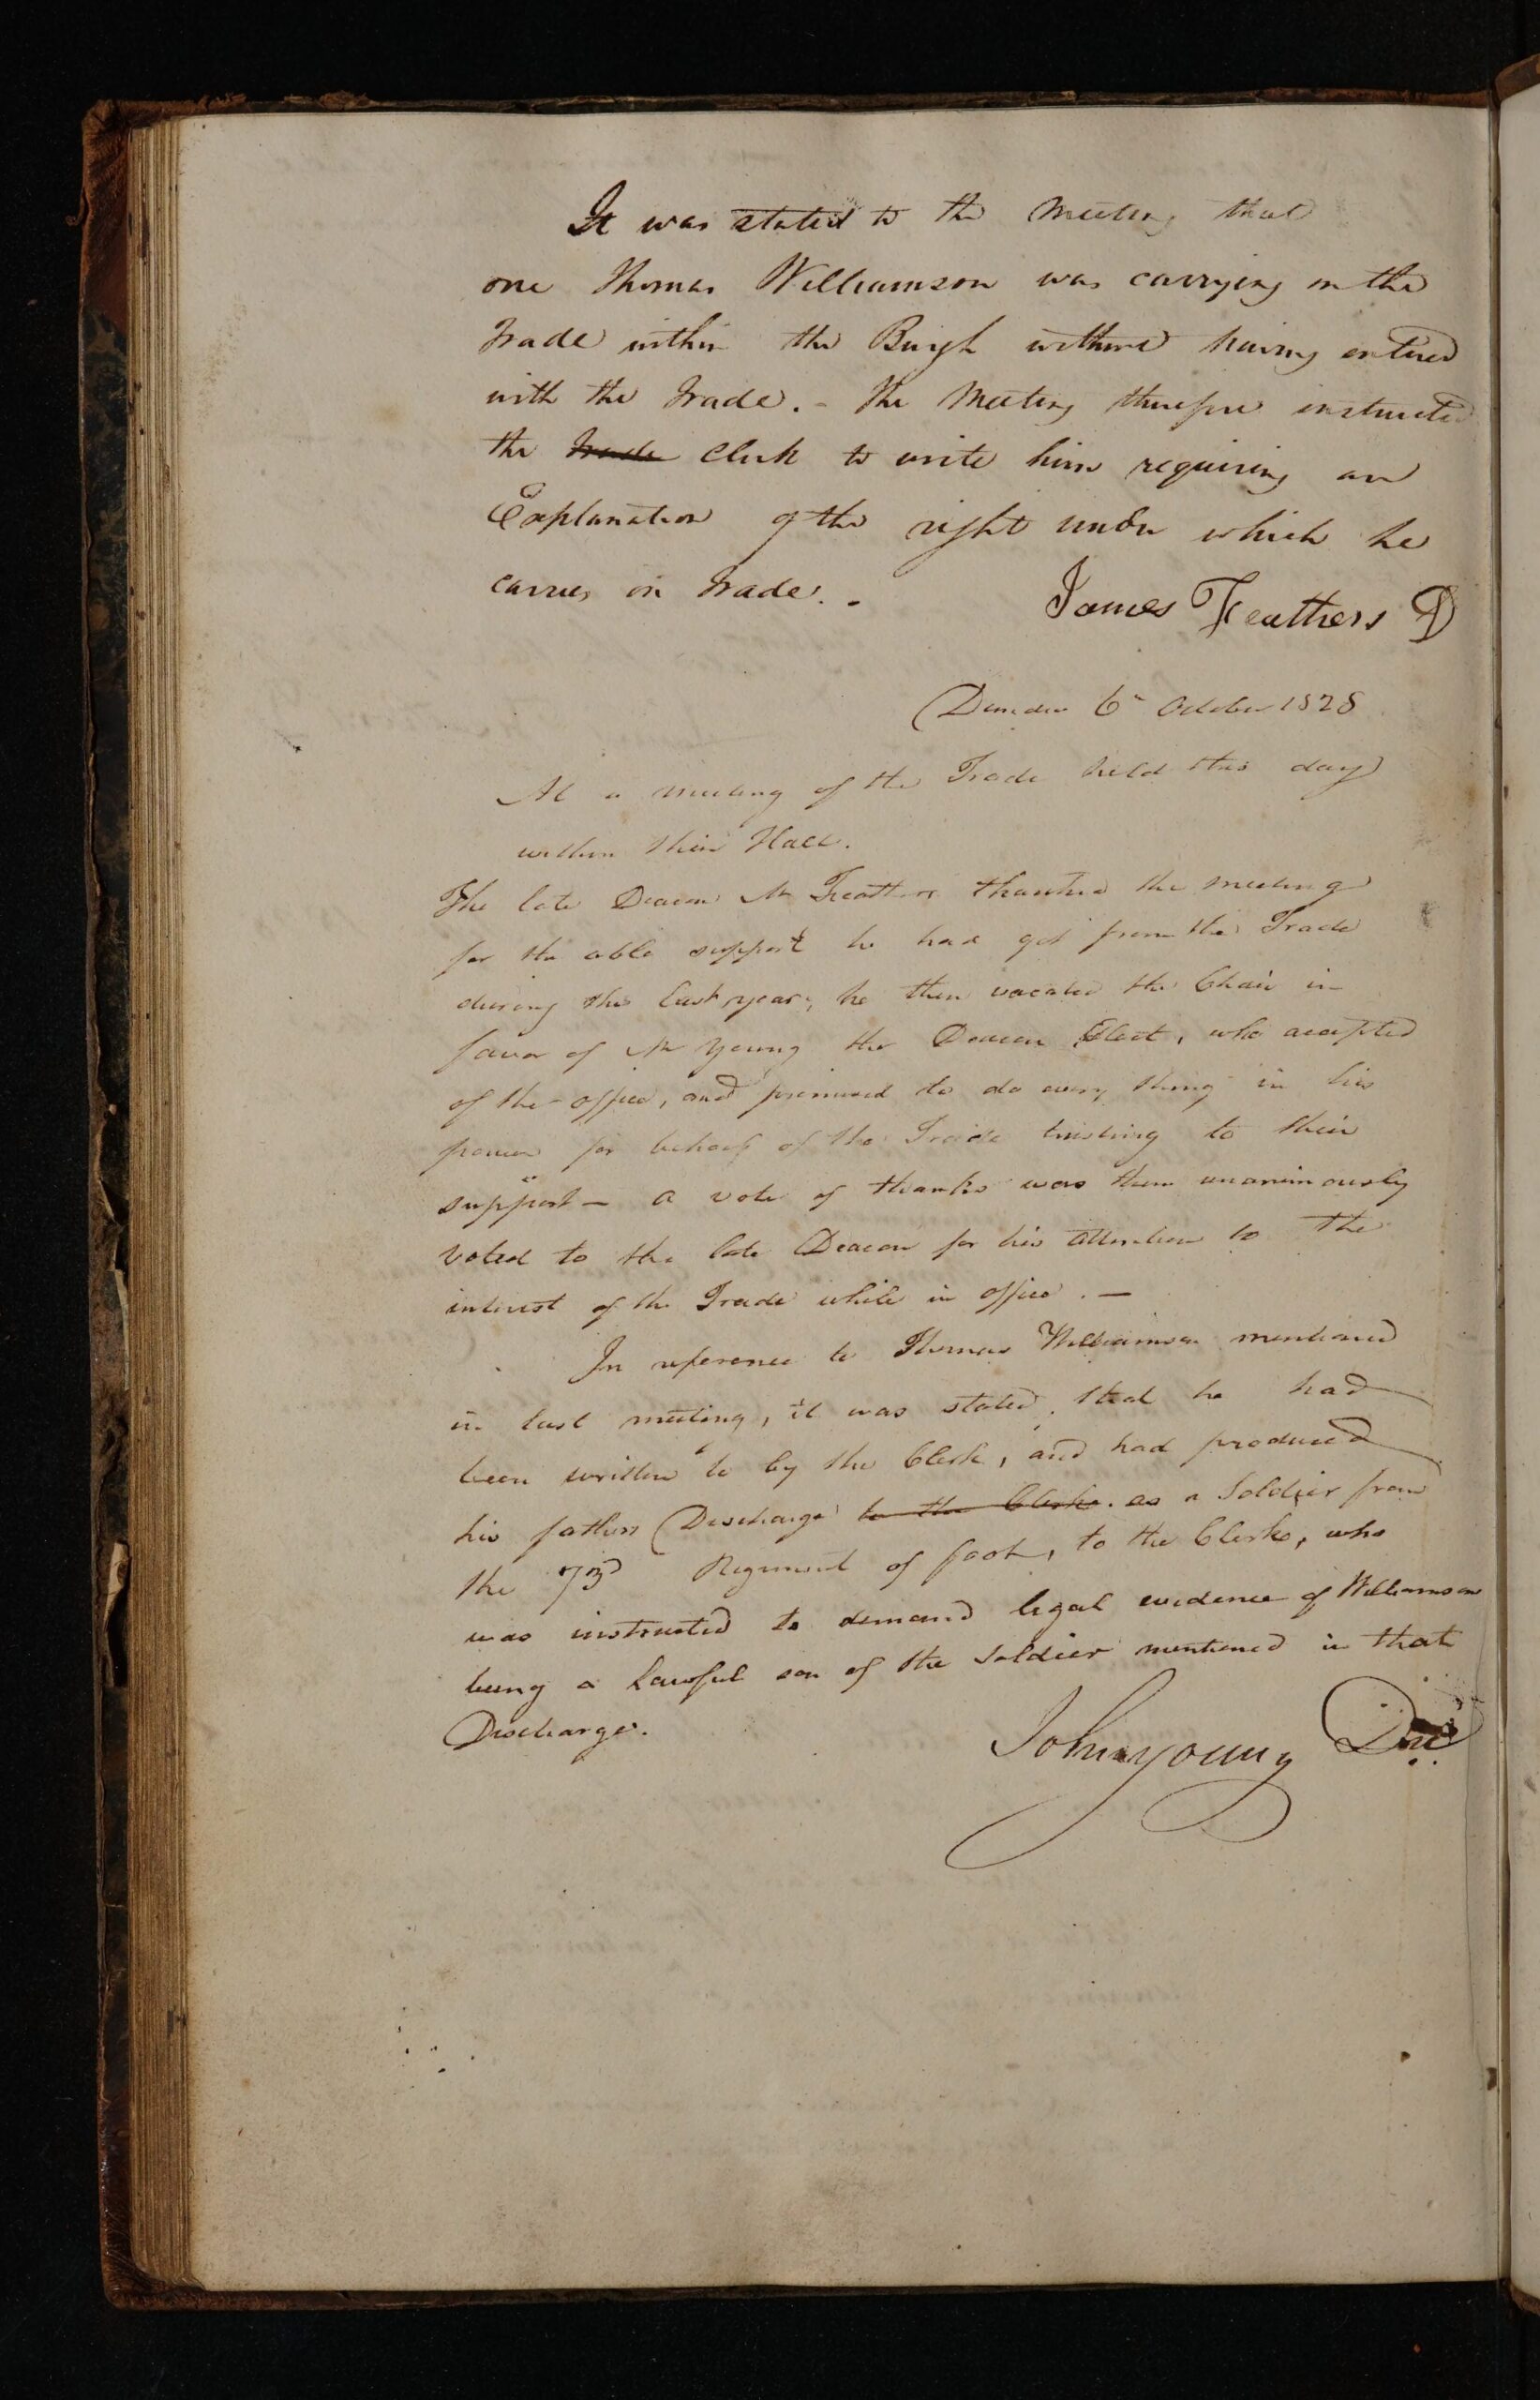 It was stated to the Meeting that
one Thomas Williamson was carrying on the
Trade within the Burgh without having entered
with the Trade. - The Meeting therefore instructed
the Trade Clerk to write him requiring an
Explanation of the right under which he
carries on Trade. -
James Feathers D
Dundee 6th October 1828
At a meeting of the Trade held this day
within their Hall.
The late Deacon Mr Feathers thanked the meeting
for the able support he had got from the Trade
during the last year, he then vacated the Chair in
favor of Mr Young the Deacon Elect, who accepted
of the office, and promised to do every thing in his
power for behoof of the Trade trusting to their
support — A vote of thanks was then unanimously
voted to the late Deacon for his attention to the
interest of the Trade while in office. —
In reference to Thomas Williamson mentioned
in last meeting, it was stated, that he had
been written to by the Clerk, and had produced
his fathers Discharge to the Clerk. as a Soldier from
the 73d Regiment of foot, to the Clerk, who
was instructed to demand legal evidence of Williamson
being a Lawful son of the Soldier mentioned in that
Discharge.
John Young